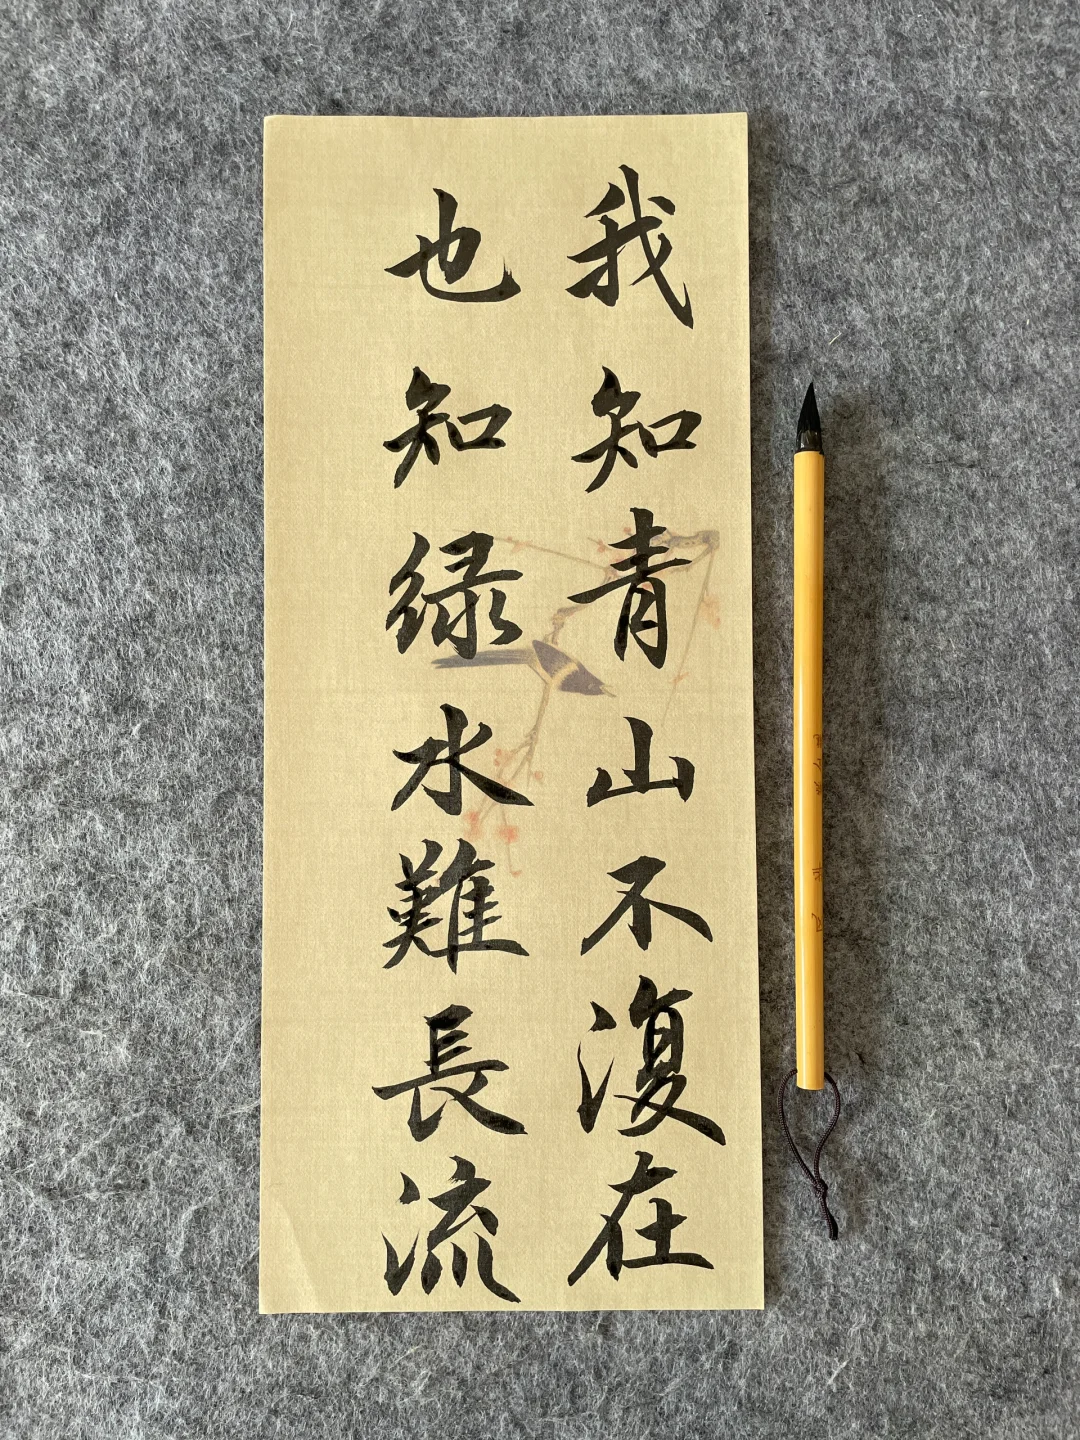 我知青山不復在
也知绿水難長流